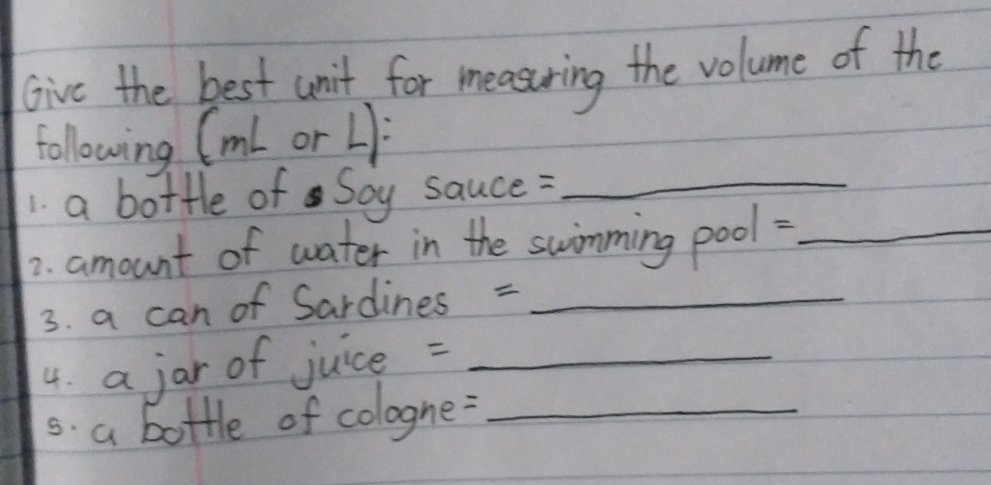 Give the best unit for measuring the volume of the
following (mL or L):
1. a bottle of Soy sauce = ____________
2. amount of water in the swimming pool = ____________
3. a can of Sardines = ____________
4. a jar of juice = ____________
5. a bottle of cologne = ____________